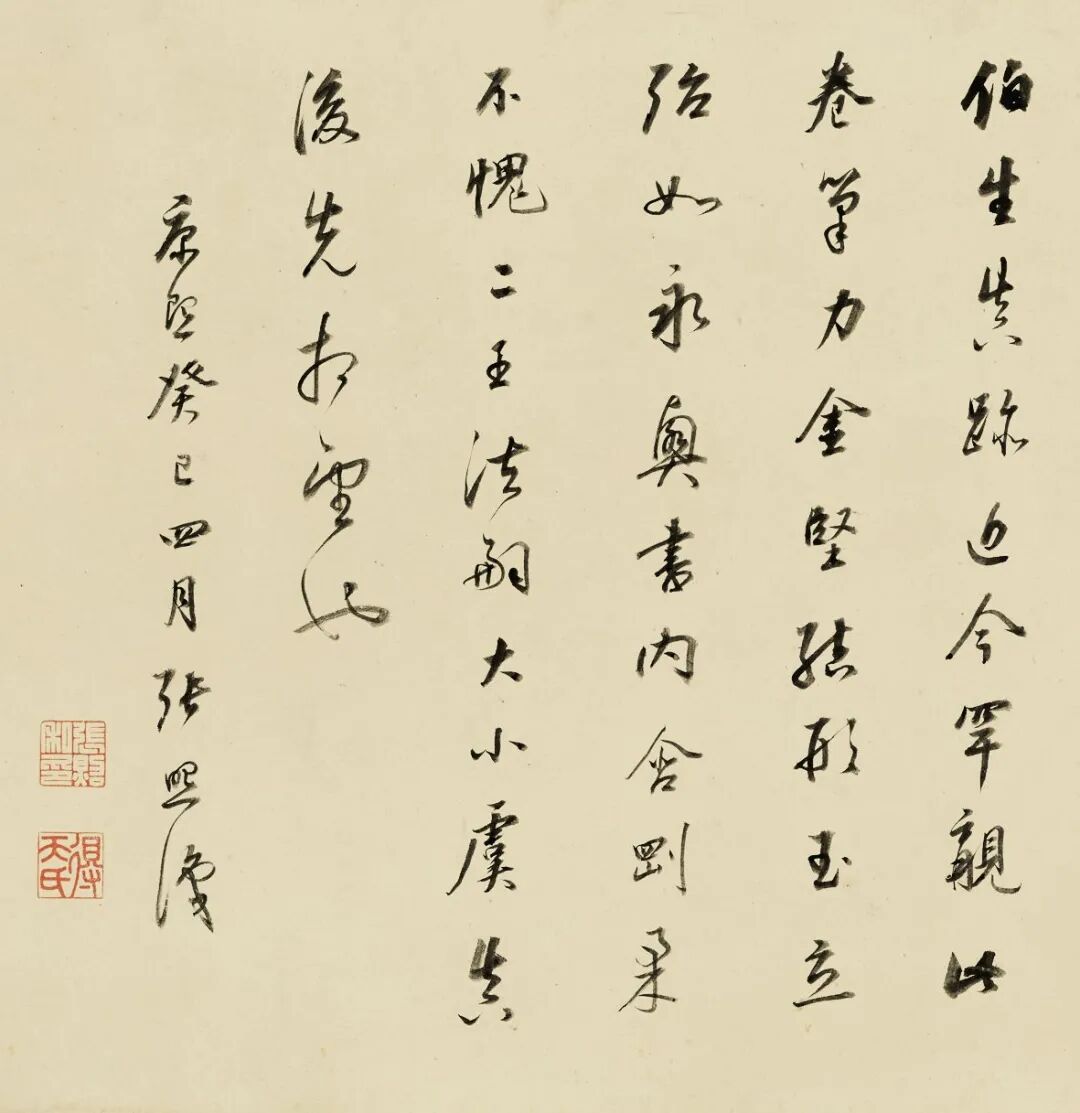 伯生真跡近今罕覯此
卷筆力金堅結形玉立
殆如永興書内含剛柔
不愧二王法嗣大小虞真
後先相望也
康熙癸巳四月張照識
張照私印
得天氏